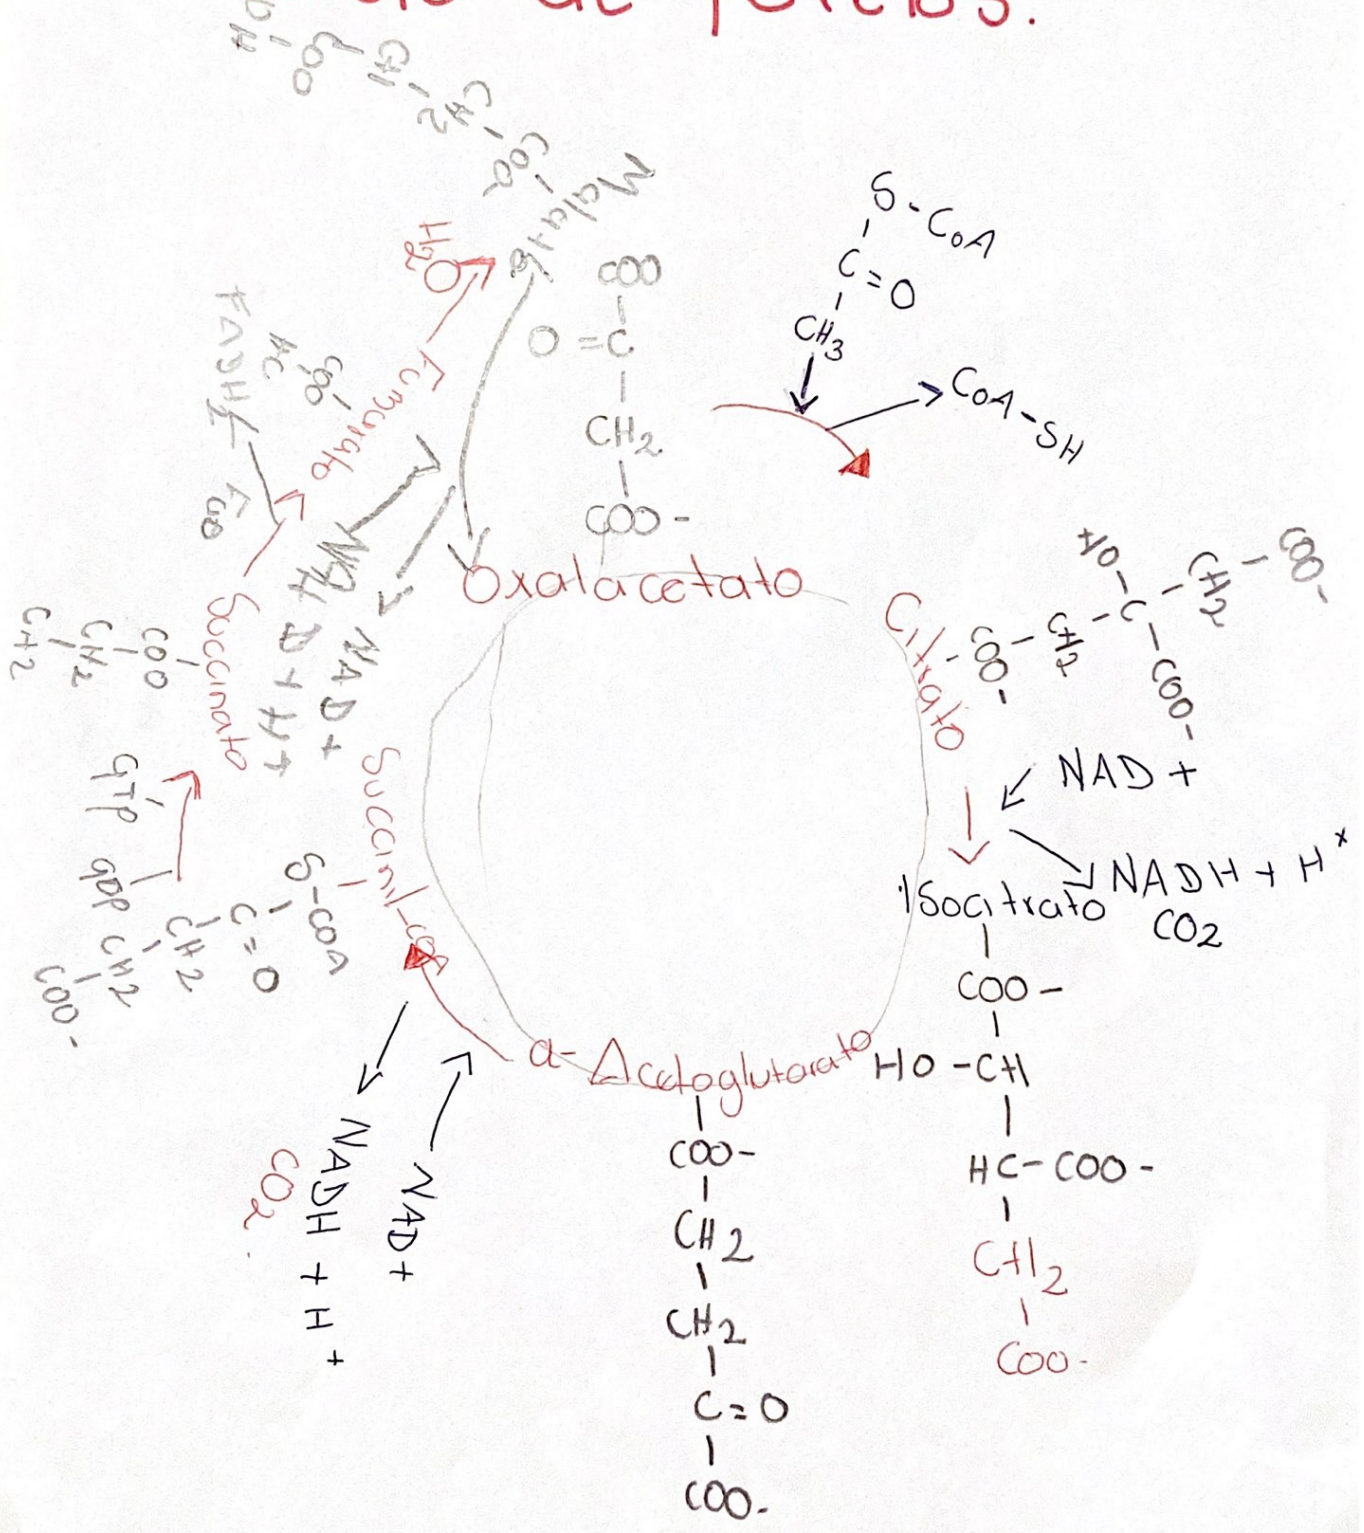 de
S-CoA
C=O
CH3
CoA-SH
Malato
COO
CH2
CH
COO
COO
O=C
CH2
COO-
Oxalacetato
Citrato
COO-
CH2
HO
C
COO-
CH2
COO-
NAD+
NADH + H+
CO2
Isocitrato
COO-
HO-CH
HC-COO-
CH2
COO-
α-Acetoglutarato
COO-
CH2
CH2
C=O
COO-
NAD+
NADH + H+
CO2
Succinil-CoA
S-COA
C=O
CH2
CH2
COO-
GDP
GTP
Succinato
COO
CH2
CH2
FADH
Fumarato
COO
HC
H2O
NAD+